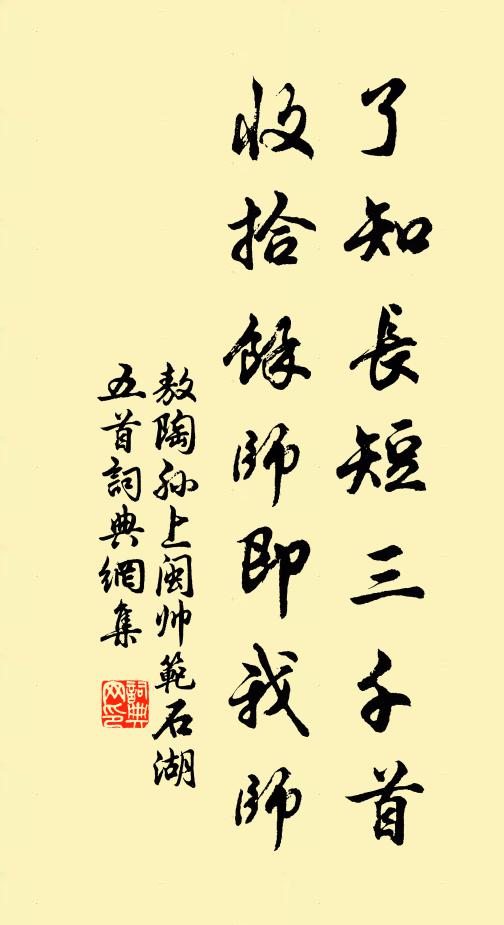 了知長短三千首
收拾餘師即我師
敖陶孙上閩帅範石湖
五首詞典網集
詞典网印